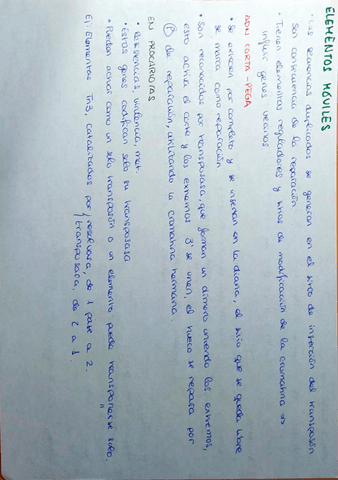 ELEMENTOS MÓVILES
· Las secuencias duplicadas se generan en el sitio de inserción del transposón
son consecuencia de la reparación
· Tienen elementos reguladores y sitios de modificación de la cromatina ⇒
influir genes vecinos
ADN CORTA-PEGA
· Se extraen por completo y se insertan en la diana, el sitio que se queda libre
se marca como reparación
· Son reconocidos por transposasa, que forman un dímero uniendo los extremos,
esto activa el corte y los extremos 3' se unen, el hueco se repara por
de reparación, utilizando la cromatina hermana.
EN PROCARIOTAS
· Resistencias, virulencia, met.
· Estos genes codifican solo su transposasa
· Pueden actuar como un solo transposón o un elemento puede transponerse solo.
Ej: Elementos Tn3, catalizados por resolvasa, de 1 pasa a 2
transposasa, de 2 a 1.